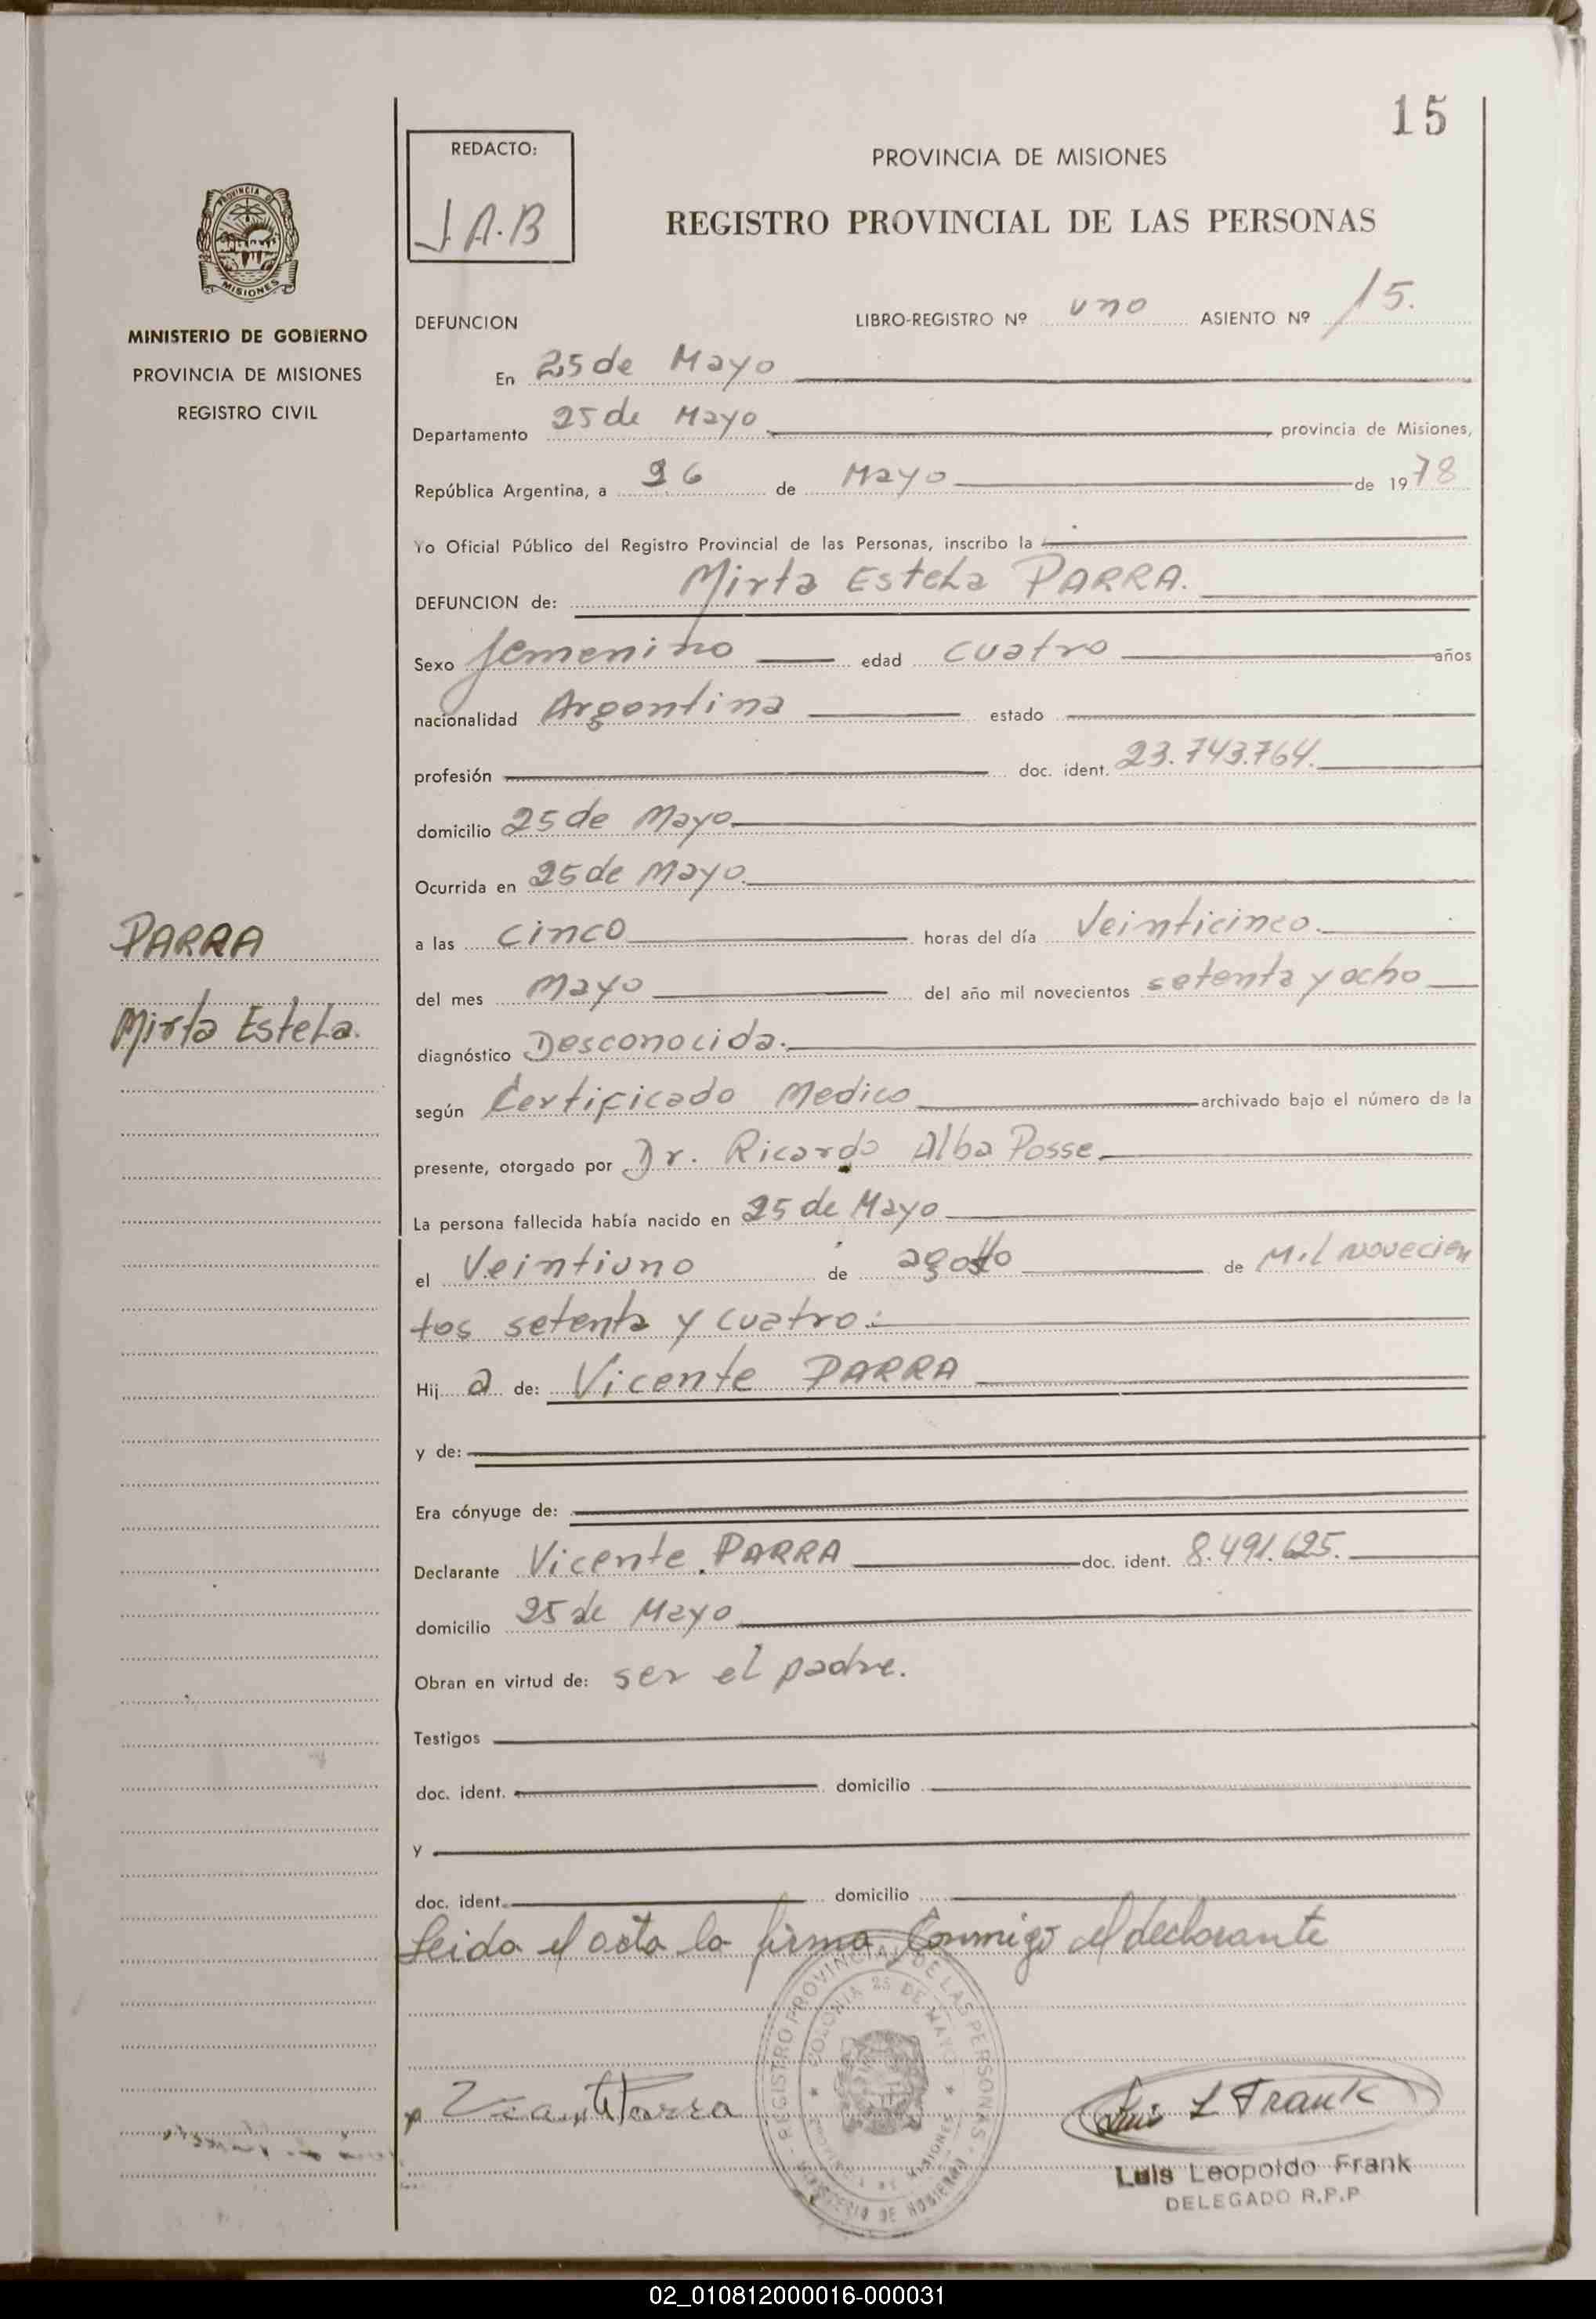 15
REDACTO:
J.A.B
PROVINCIA DE MISIONES
REGISTRO PROVINCIAL DE LAS PERSONAS
PROVINCIA DE
MISIONES
MINISTERIO DE GOBIERNO
PROVINCIA DE MISIONES
REGISTRO CIVIL
DEFUNCION LIBRO-REGISTRO Nº uno ASIENTO Nº 15.
En 25 de Mayo
Departamento 25 de Mayo, provincia de Misiones,
República Argentina, a 26 de Mayo de 1978
Yo Oficial Público del Registro Provincial de las Personas, inscribo la
DEFUNCION de: Mirta Estela PARRA.
Sexo femenino edad cuatro años
nacionalidad Argentina estado
profesión doc. ident. 23.743.764.
domicilio 25 de Mayo
Ocurrida en 25 de Mayo.
PARRA
Mirta Estela.
a las cinco horas del día Veinticinco.
del mes Mayo del año mil novecientos setenta y ocho
diagnóstico Desconocida.
según Certificado Medico archivado bajo el número de la
presente, otorgado por Dr. Ricardo Alba Posse.
La persona fallecida había nacido en 25 de Mayo
el Veintiuno de agosto de Mil novecien
tos setenta y cuatro.
Hij a de: Vicente PARRA
y de:
Era cónyuge de:
Declarante Vicente PARRA doc. ident. 8.491.625.
domicilio 25 de Mayo
Obran en virtud de: ser el padre.
Testigos
doc. ident. domicilio
y
doc. ident. domicilio
Leida el acta la firma Conmigo el declarante
REGISTRO PROVINCIAL DE LAS PERSONAS
COLONIA 25 DE MAYO
MISIONES
MINISTERIO DE GOBIERNO
Luis L Frank
Luis Leopoldo Frank
DELEGADO R.P.P
02_010812000016-000031